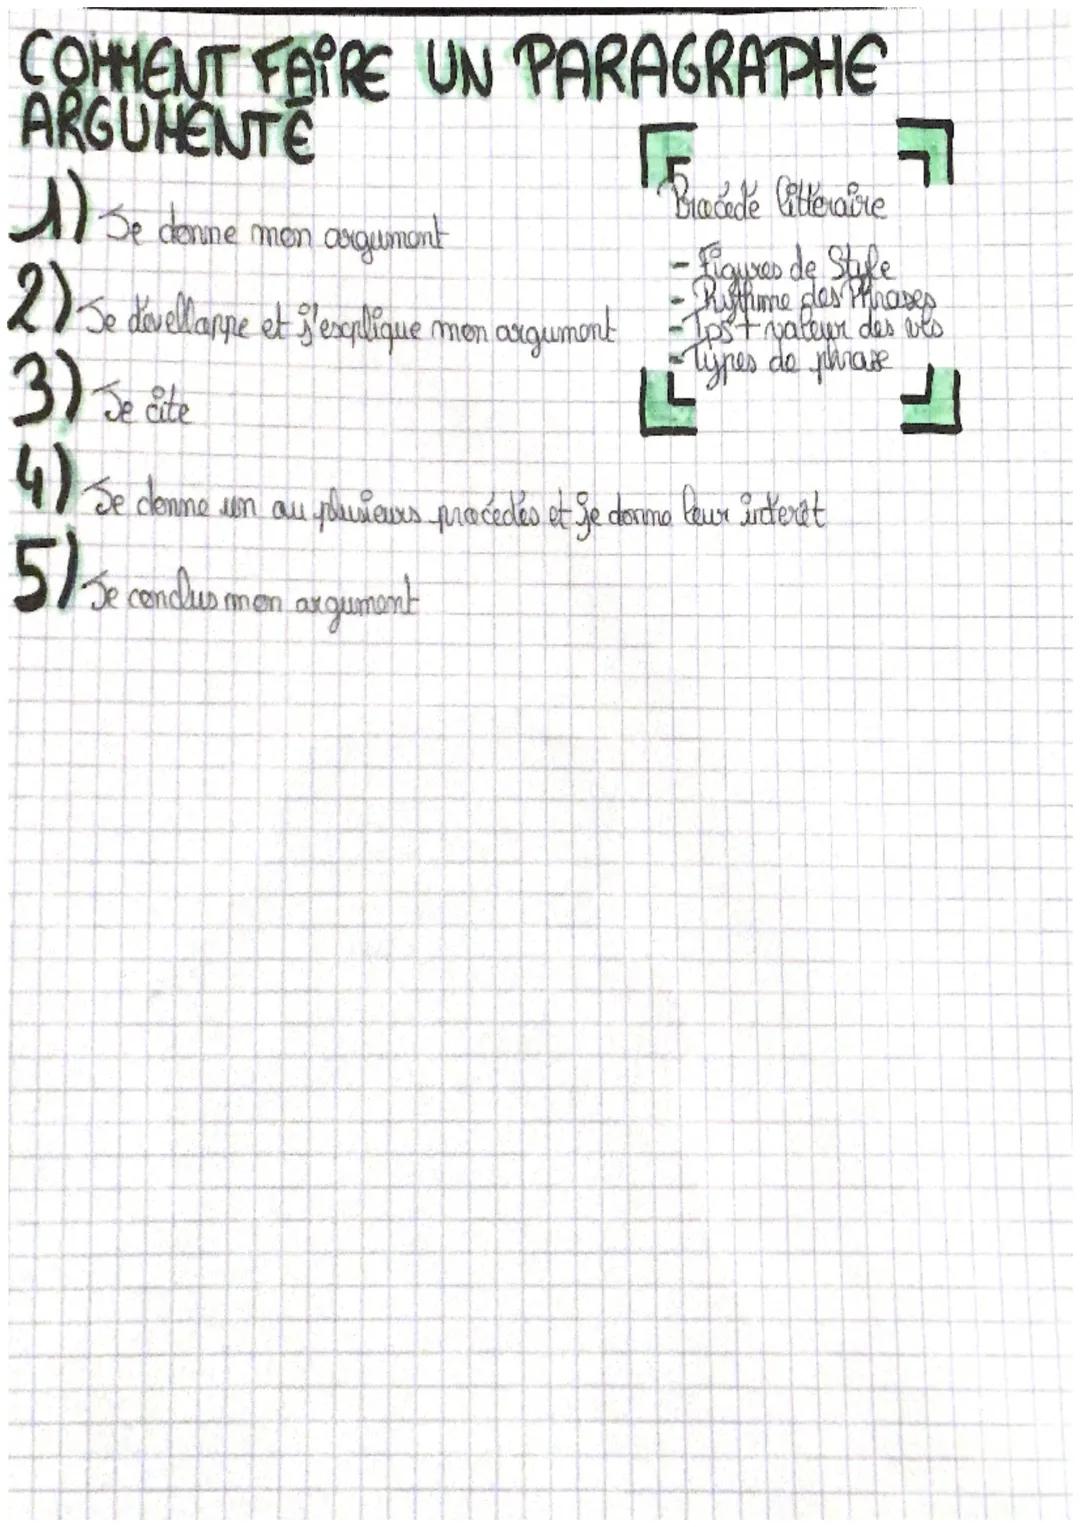 COMMENT FAIRE UN PARAGRAPHE
ARGUMENTÉ
1) Je donne mon argument
2) Je dévellappe et j'esxplique mon argument
3) Je cite
4) Je donne un ou plusieurs procédés et je donne leur intérêt
5) Je conclus mon argument
Procédé littéraire
- Figures de Style
- Rythme des Phrases
- Tps + valeur des vbs
- Types de phrase